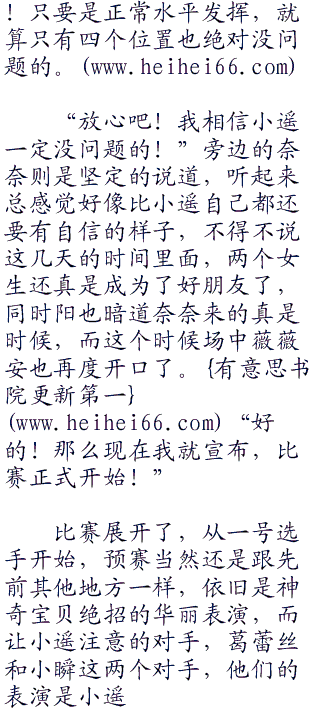 ！只要是正常水平发挥，就
算只有四个位置也绝对没问
题的。(www.heihei66.com)
“放心吧！我相信小遥
一定没问题的！”旁边的奈
奈则是坚定的说道，听起来
总感觉好像比小遥自己都还
要有自信的样子，不得不说
这几天的时间里面，两个女
生还真是成为了好朋友了，
同时阳也暗道奈奈来的真是
时候，而这个时候场中薇薇
安也再度开口了。{有意思书
院更新第一}
(www.heihei66.com)“好
的！那么现在我就宣布，比
赛正式开始！”
比赛展开了，从一号选
手开始，预赛当然还是跟先
前其他地方一样，依旧是神
奇宝贝绝招的华丽表演，而
让小遥注意的对手，葛蕾丝
和小瞬这两个对手，他们的
表演是小遥